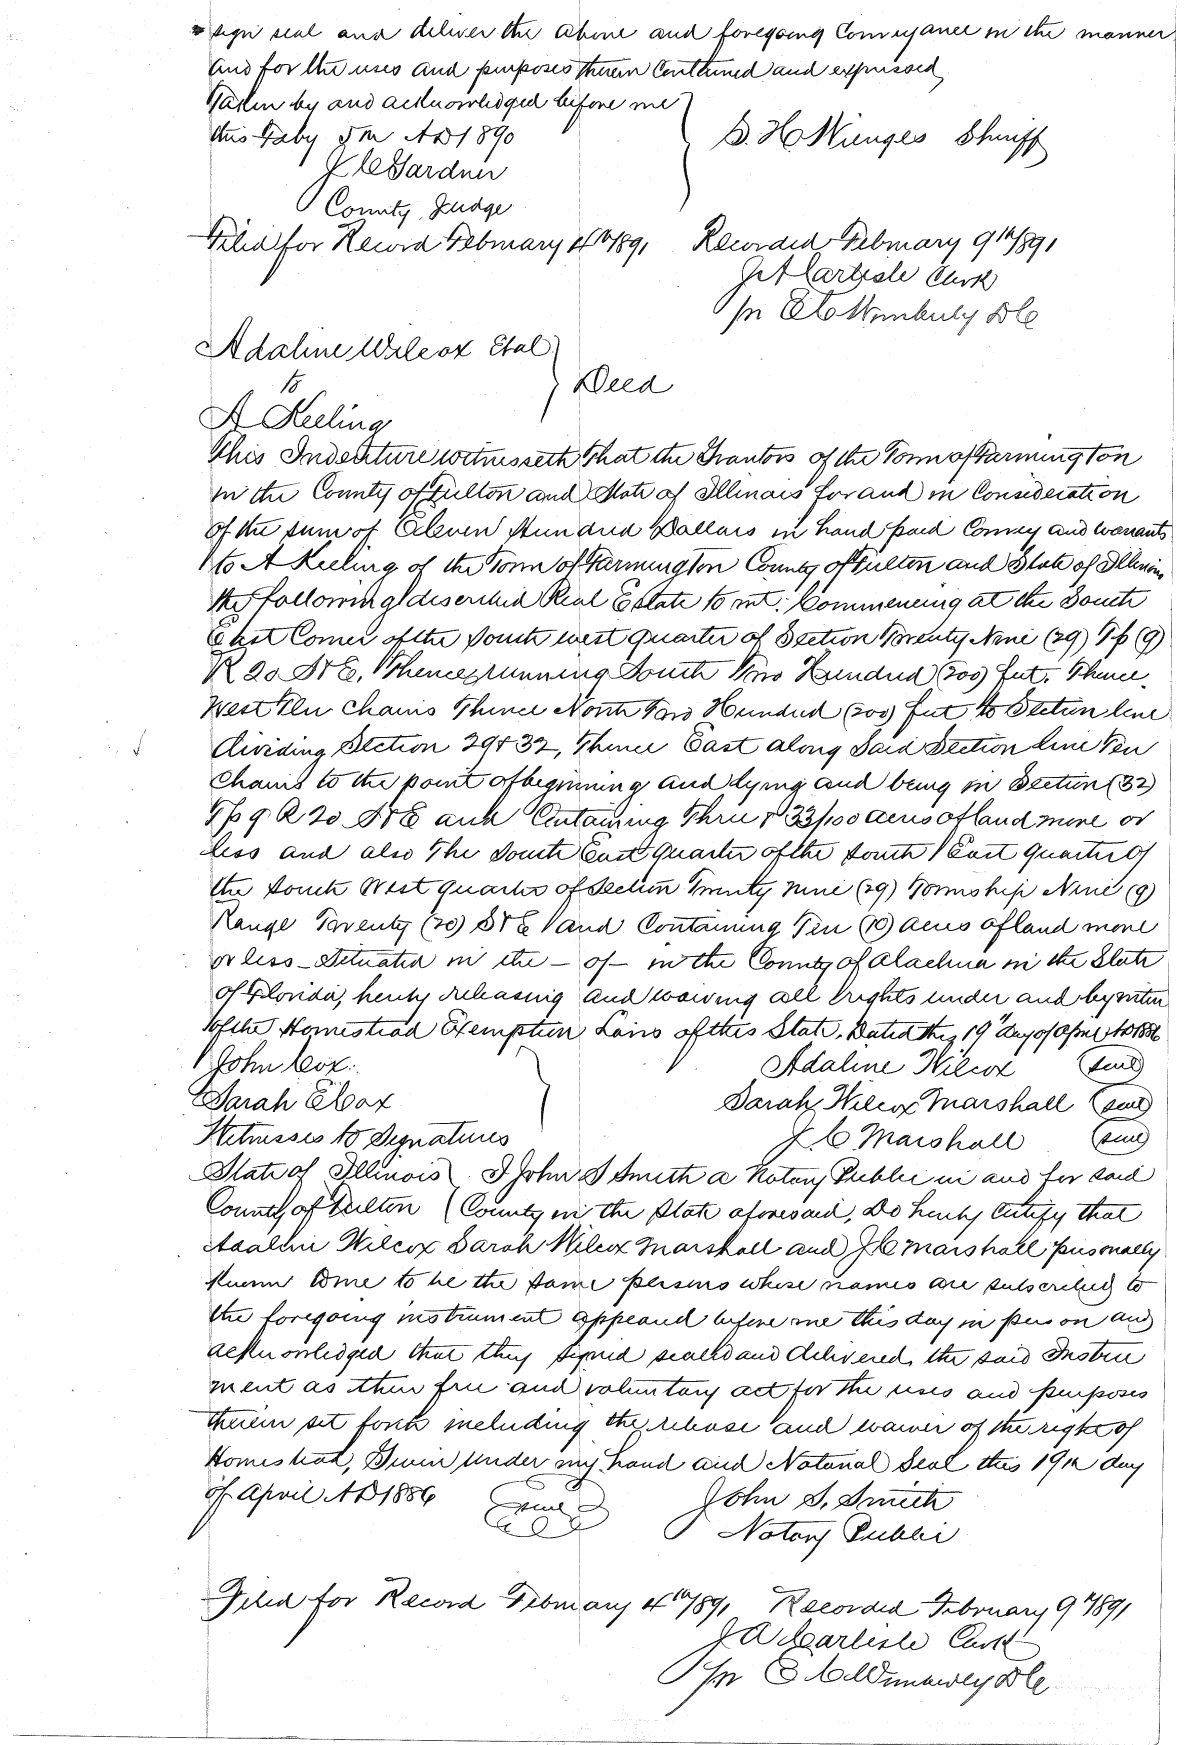 sign seal and deliver the above and foregoing Conveyance in the manner
and for the uses and purposes therein Contained and expressed
Taken by and acknowledged before me
this Feby 5th AD 1890
S. H. Wienges Sheriff
J C Gardner
County Judge
Filed for Record February 4th 1891 Recorded February 9th 1891
J A Carlisle Clerk
pr E C Wimberly DC
Adaline Wilcox Etal
to
Deed
A Keeling
This Indenture witnesseth that the Grantors of the Town of Farmington
in the County of Fulton and State of Illinois for and in Consideration
of the sum of Eleven Hundred Dollars in hand paid Convey and warrants
to A Keeling of the Town of Farmington County of Fulton and State of Illinois
the following described Real Estate to wit: Commencing at the South
East Corner of the South west quarter of Section Twenty Nine (29) Tp (9)
R 20 S & E, Thence running South Two Hundred (200) feet, Thence
West Ten Chains Thence North Two Hundred (200) feet to Section line
dividing Section 29 & 32, Thence East along Said Section line Ten
Chains to the point of beginning and lying and being in Section (32)
Tp 9 R 20 S & E and Containing Three & 33/100 acres of land more or
less and also The South East quarter of the South East quarter of
the South West quarter of Section Twenty nine (29) Township Nine (9)
Range Twenty (20) S & E and Containing Ten (10) acres of land more
or less - Situated in the - of - in the County of Alachua in the State
of Florida, hereby releasing and waiving all rights under and by virtue
of the Homestead Exemption Laws of this State. Dated this 19th day of April AD 1886
John Cox. Adaline Wilcox (seal)
Sarah E Cox Sarah Wilcox Marshall (seal)
Witnesses to Signatures J. C Marshall (seal)
State of Illinois I John S Smith a Notary Public in and for said
County of Fulton County in the State aforesaid, Do hereby Certify that
Adaline Wilcox Sarah Wilcox Marshall and J C Marshall personally
known to me to be the same persons whose names are subscribed to
the foregoing instrument appeared before me this day in person and
acknowledged that they signed sealed and delivered the said Instru
ment as their free and voluntary act for the uses and purposes
therein set forth including the release and waiver of the right of
Homestead, Given under my hand and Notarial Seal this 19th day
of April AD 1886 Seal John S. Smith
Notary Public
Filed for Record February 4th 1891 Recorded February 9th 1891
J A Carlisle Clerk
pr E C Wimberley DC